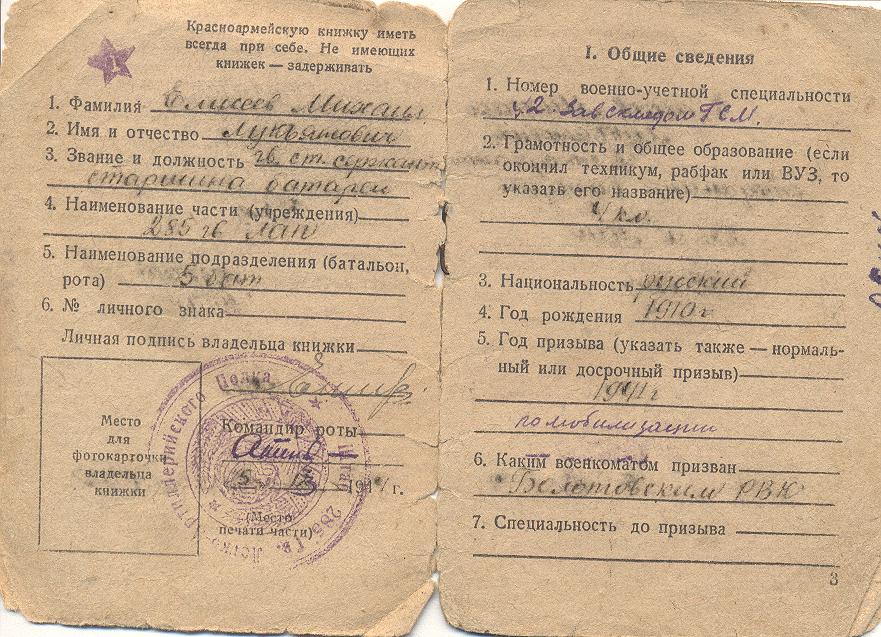 Красноармейскую книжку иметь
всегда при себе. Не имеющих
книжек — задерживать
1. Фамилия Елисеев Михаил
2. Имя и отчество Лукьянович
3. Звание и должность гв. ст. сержант
старшина батареи
4. Наименование части (учреждения)
285 гв лап
5. Наименование подразделения (батальон,
рота) 5 бат
6. № личного знака
Личная подпись владельца книжки
Место
для
фотокарточки
владельца
книжки
Командир роты
194 г.
(Место
печати части)
Штаб 285 Гв. Артиллерийского Полка
I. Общие сведения
1. Номер военно-учетной специальности
Зав складом ГСМ.
2. Грамотность и общее образование (если
окончил техникум, рабфак или ВУЗ, то
указать его название)
4 кл.
3. Национальность русский
4. Год рождения 1910 г
5. Год призыва (указать также — нормаль-
ный или досрочный призыв)
1941 г
по мобилизации
6. Каким военкоматом призван
Болотовским РВК
7. Специальность до призыва
3